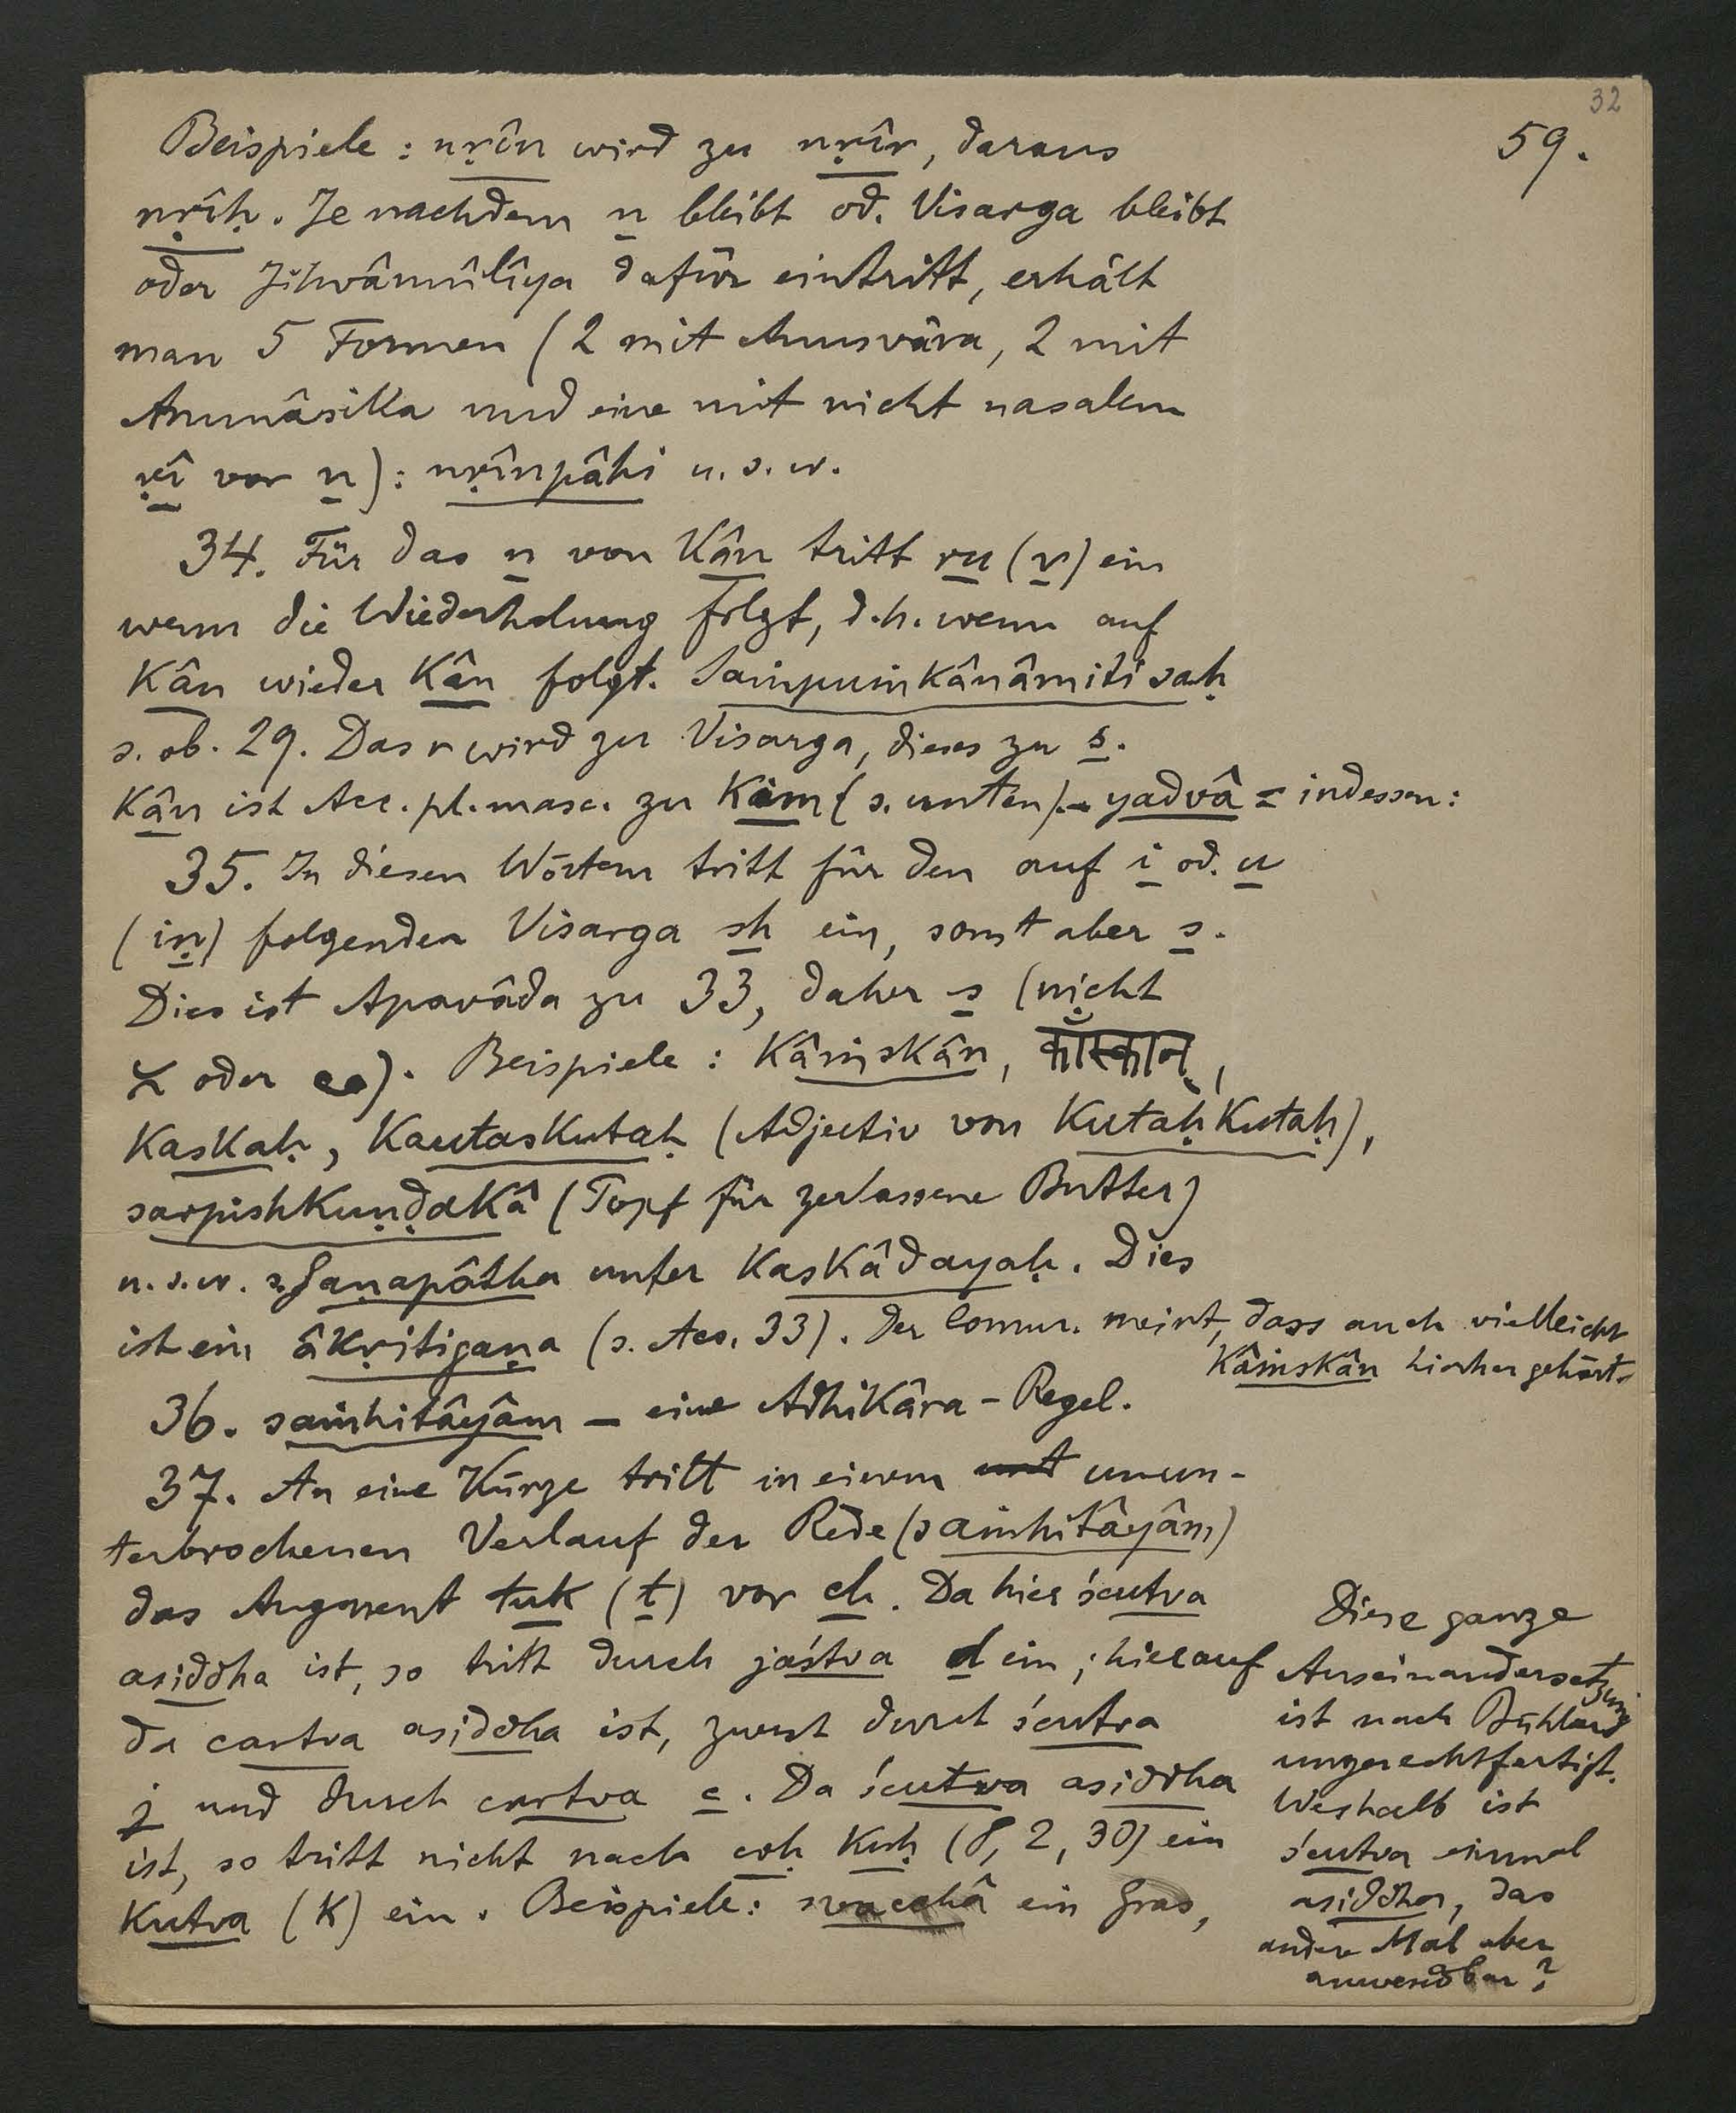 32
59.
Beispiele: nṛîn wird zu nṛîr, daraus
nṛîḥ. Je nachdem n bleibt od. Visarga bleibt
oder Jihvâmûlîya dafür eintritt, erhält
man 5 Formen (2 mit Anusvâra, 2 mit
Anunâsika und eine mit nicht nasalem
ṛî vor n): nṛînpâhi u. s. w.
34. Für das n von Kân tritt ru (r) ein
wenn die Wiederholung folgt, d. h. wenn auf
Kân wieder Kân folgt. Saṁpuṁkânâmiti saḥ
s. ob. 29. Das r wird zu Visarga, dieses zu s.
Kân ist Acc. pl. masc. zu Kim (s. unten). – yadvâ = indessen:
35. In diesen Wörtern tritt für den auf i od. u
(iṇ) folgenden Visarga sh ein, sonst aber s.
Dies ist Apavâda zu 33, daher s (nicht
≍ oder ꣳ). Beispiele: Kâṁskân, काँस्कान्,
Kaskaḥ, Kautaskutaḥ (Adjectiv von Kutaḥ Kutaḥ),
sarpishkuṇḍakâ (Topf für zerlassene Butter)
u. s. w. s. Gaṇapâṭha unter Kaskâdayaḥ. Dies
ist ein âkṛitigaṇa (s. Acc. 33). Der Comm. meint, dass auch vielleicht
Kâṁskân hierher gehört.
36. saṁhitâyâm – eine Adhikâra-Regel.
37. An eine Kürze tritt in einem unt unun-
terbrochenen Verlauf der Rede (saṁhitâyâm)
das Augment tuk (t) vor ch. Da hier ścutva
asiddha ist, so tritt durch jaśtva d ein; hierauf
da cartva asiddha ist, zuerst durch ścutva
j und durch cartva c. Da ścutva asiddha
ist, so tritt nicht nach coḥ kuḥ (8, 2, 30) ein
Kutva (k) ein. Beispiele: svacchâ ein Gras,
Diese ganze
Auseinandersetzung
ist nach Bühler
ungerechtfertigt.
Weshalb ist
ścutva einmal
asiddha, das
andere Mal aber
anwendbar?